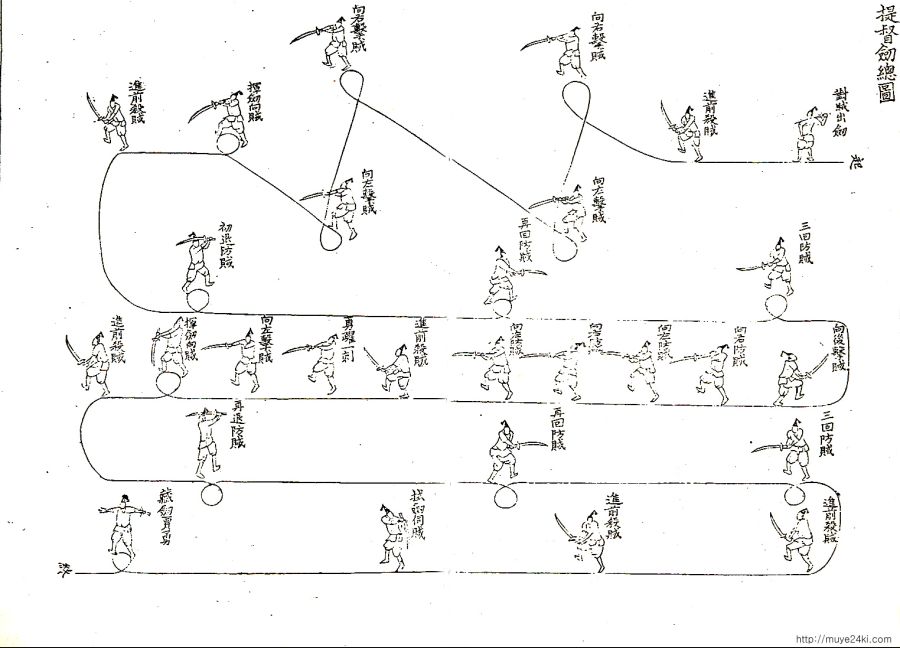 提督劒總圖
對賊出劒
進前殺賊
向右擊賊
向左擊賊
向右擊賊
向左擊賊
揮劒向賊
進前殺賊
初退防賊
再回防賊
三回防賊
向後擊賊
向右防賊
向左防賊
向右防賊
向左防賊
進前殺賊
勇躍一刺
向左擊賊
揮劒向賊
進前殺賊
再退防賊
再回防賊
三回防賊
進前殺賊
進前殺賊
拭劒伺賊
藏劒賈勇
終
http://muye24ki.com